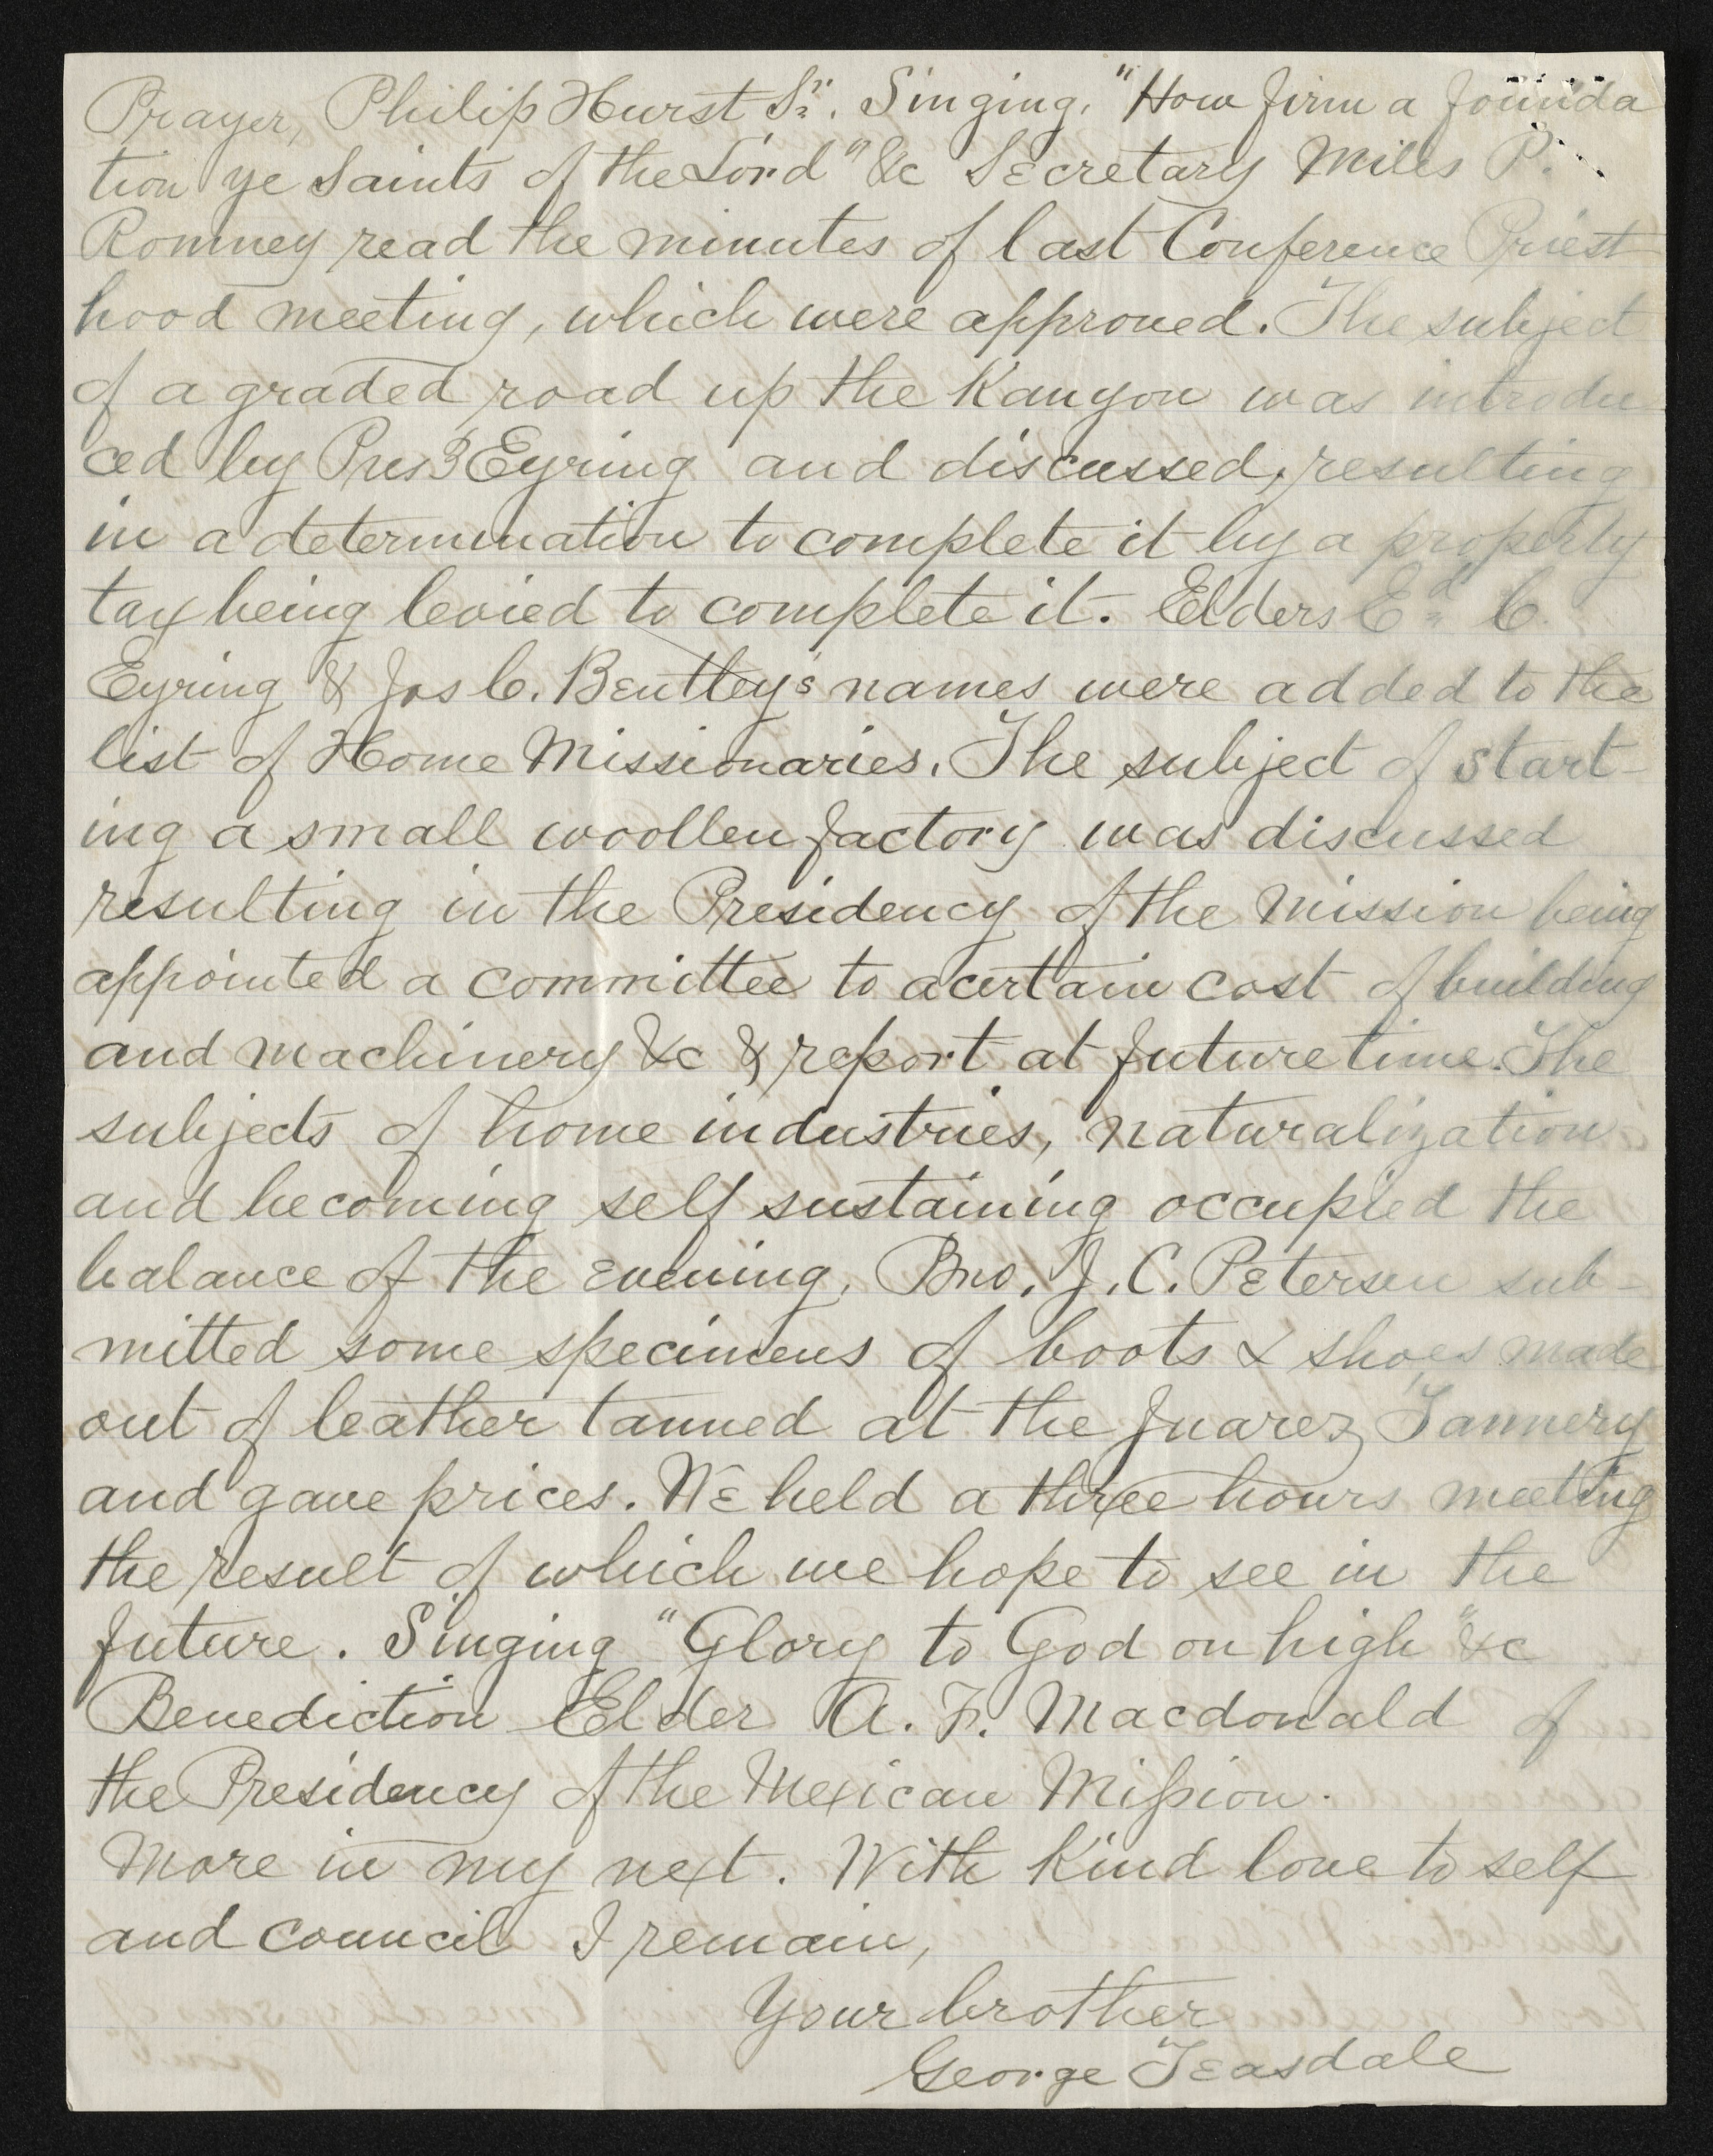 Prayer, Philip Hurst Sr. Singing. "How firm a founda
tion ye Saints of the Lord" &c Secretary Miles P.
Romney read the minutes of last Conference Priest
hood meeting, which were approved. The subject
of a graded road up the Kanyon was introdu
ced by Pres Eyring and discussed, resulting
in a determination to complete it by a property
tax being levied to complete it. Elders Ed C.
Eyring & Jos C. Bentley's names were added to the
list of Home Missionaries. The subject of start-
ing a small woollen factory was discussed
resulting in the Presidency of the Mission being
appointed a committee to acertain cost of building
and machinery &c & report at future time. The
subjects of home industries, naturalization
and becoming self sustaining occupied the
balance of the evening. Bro. J. C. Petersen sub-
mitted some specimens of boots & shoes made
out of leather tanned at the Juarez Tannery
and gave prices. We held a three hours meeting
the result of which we hope to see in the
future. Singing "Glory to God on high" &c
Benediction Elder A. F. Macdonald of
the Presidency of the Mexican Mission.
More in my next. With Kind love to self
and council I remain,
Your brother
George Teasdale